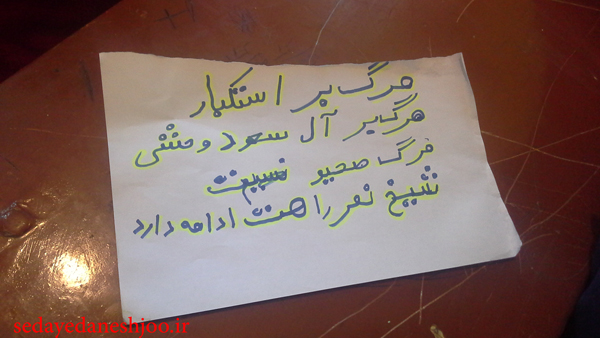 مرگ بر استکبار
مرگ بر آل سعود وحشی
مرگ صهیو نسیت
شیخ نمر راهت ادامه دارد
sedayedaneshjoo.ir